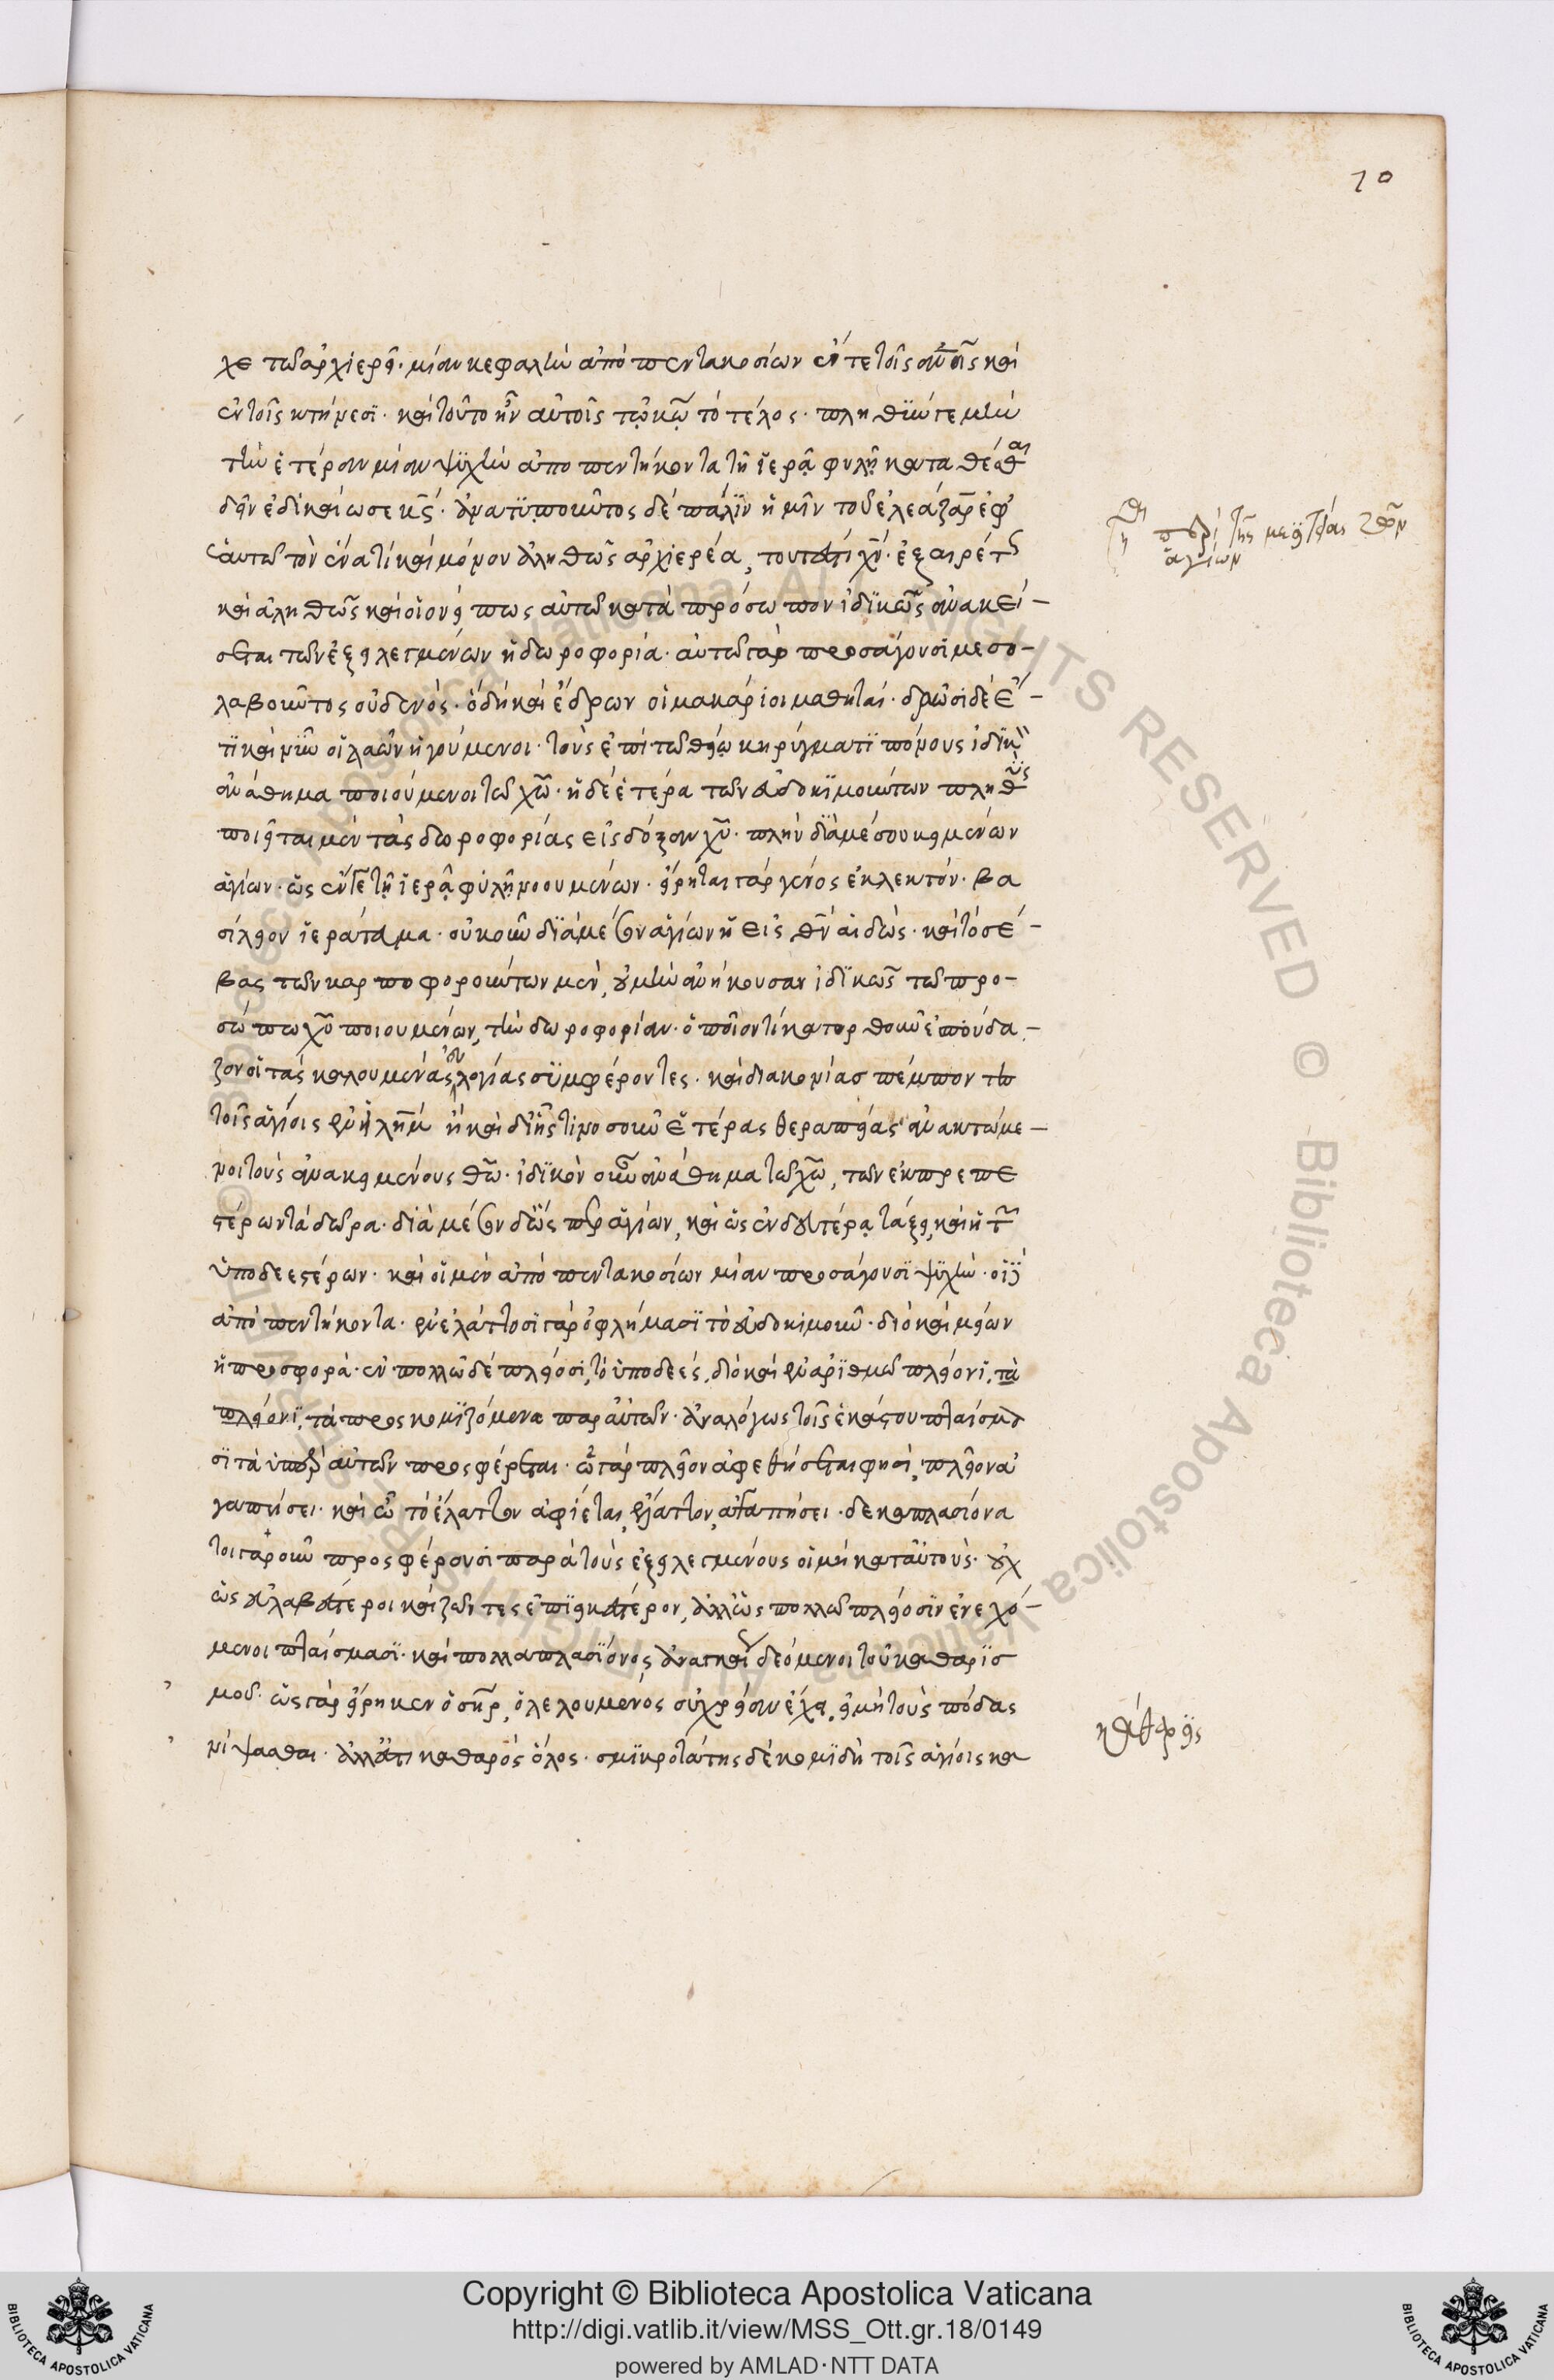 70
χε τῶ ἀρχιερεῖ· μίαν κεφαλὴν ἀπὸ πεντακοσίων ἔν τε τοῖς ἀνοις καὶ
ἐν τοῖς κτήνεσι· καὶ τοῦτο ἦν αὐτοῖς τῶ κω τὸ τέλος· πληθὺν γε μὴν
τὴν ἑτέραν μίαν ψυχὴν ἀπὸ πεντήκοντα τῆ ἱερᾶ φυλῆ κατατιθέναι
δεῖν ἐδικαίωσε κς· ἀνατυποῦντος δὲ πάλιν ἡμῖν τοῦ ἐλεάζαρ ἐφ
ἑαυτῶ τὸν ἕνά τε καὶ μόνον ἀληθῶς ἀρχιερέα, τουτέστι χν· ἐξαιρέτως
καὶ ἀληθῶς καὶ οἱονεί πως αὐτῶ κατὰ πρόσωπον ἰδικῶς ἀνακεί-
σεται τῶν ἐξειλεγμένων ἡ δωροφορία· αὐτῶ γὰρ προσάγουσι μεσο-
λαβοῦντος οὐδενός· ὃ δὴ καὶ ἔδρων οἱ μακάριοι μαθηταί· δρῶσι δὲ ἔ-
τι καὶ νῦν οἱ λαῶν ἡγούμενοι· τοὺς ἐπὶ τῶ θείω κηρύγματι πόνους ἰδικὸν
ἀνάθημα ποιούμενοι τῶ χω· ἡ δὲ ἑτέρα τῶν εὐδοκιμούντων πληθὺς
ποιεῖται μὲν τὰς δωροφορίας εἰς δόξαν χυ· πλὴν διὰ μέσου κειμένων
ἁγίων· ὡς ἔν γε τῆ ἱερᾶ φυλῆ νοουμένων· εἴρηται γὰρ γένος ἐκλεκτόν· βα
σίλειον ἱεράτευμα· οὐκοῦν διὰ μέσων ἁγίων ἡ εἰς θν αἰδώς· καὶ τὸ σέ-
βας τῶν καρποφορούντων μὲν, οὐ μὴν ἀνήκουσαν ἰδικῶς τῶ προ-
σώπω χυ ποιουμένων, τὴν δωροφορίαν· ὁποῖόν τι κατορθοῦν ἐσπούδα-
ζον οἱ τὰς καλουμένας λογίας συμφέροντες· καὶ διακονίας πέμποντες
τοῖς ἁγίοις ἐν ἱλημ ἢ καὶ δι ἧς τινοσοῦν ἑτέρας θεραπείας ἀνακτώμε-
νοι τοὺς ἀνακειμένους θω· ἰδικὸν οὖν ἀνάθημα τῶ χω, τῶν ἐκπρεπε
στέρων τὰ δῶρα· διὰ μέσων δὲ ὥσπερ ἁγίων, καὶ ὡς ἐν δευτέρα τάξει, καὶ ἡ τῶν
ὑποδεεστέρων· καὶ οἱ μὲν ἀπὸ πεντακοσίων μίαν προσάγουσι ψυχήν· οἱ δὲ
ἀπὸ πεντήκοντα· ἐν ἐλάττοσι γὰρ ὀφλήμασι τὸ εὐδοκιμοῦν· διὸ καὶ μείων
ἡ προσφορά· ἐν πολλῶ δὲ πλείοσι, τὸ ὑποδεές, διὸ καὶ ἐν ἀριθμῶ πλείονι, τὰ
πλείονι, τὰ προσκομιζόμενα παρ αὐτῶν· ἀναλόγως τοῖς ἑκάστου πταίσμα
σι τὰ ὑπὲρ αὐτῶν προσφέρεται· ὧ γὰρ πλεῖον ἀφεθήσεται φησί, πλεῖον ἀ
γαπήσει· καὶ ὧ τὸ ἔλαττον ἀφίεται, ἔλαττον, ἀγαπήσει· δεκαπλασίονα
τοιγαροῦν προσφέρουσι παρὰ τοὺς ἐξειλεγμένους οἱ μὴ κατ αὐτούς· οὐχ
ὡς εὐλαβέστεροι καὶ ζῶντες ἐπιεικέστερον, ἀλλ ὡς πολλῶ πλείοσιν ἐνεχό-
μενοι πταίσμασι· καὶ πολλαπλασίονος ἀναγκαίως δεόμενοι τοῦ καθαρισ
μοῦ· ὡς γὰρ εἴρηκεν ὁ σηρ, ὁ λελουμένος οὐ χρείαν ἔχει, εἰ μὴ τοὺς πόδας
νίψασθαι· ἀλλ ἔστι καθαρὸς ὅλος· σμικροτάτης δὲ κομιδῆ τοῖς ἁγίοις κα
ἁγίων